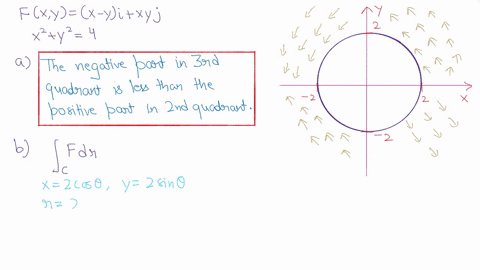 F(x,y)=(x-y)i+xyj
x²+y²=4
a) The negative part in 3rd
quadrant is less than the
positive part in 2nd quadrant.
b) ∫_C Fdr
x=2cosθ, y=2sinθ
r=
y
2
-2
2
x
-2